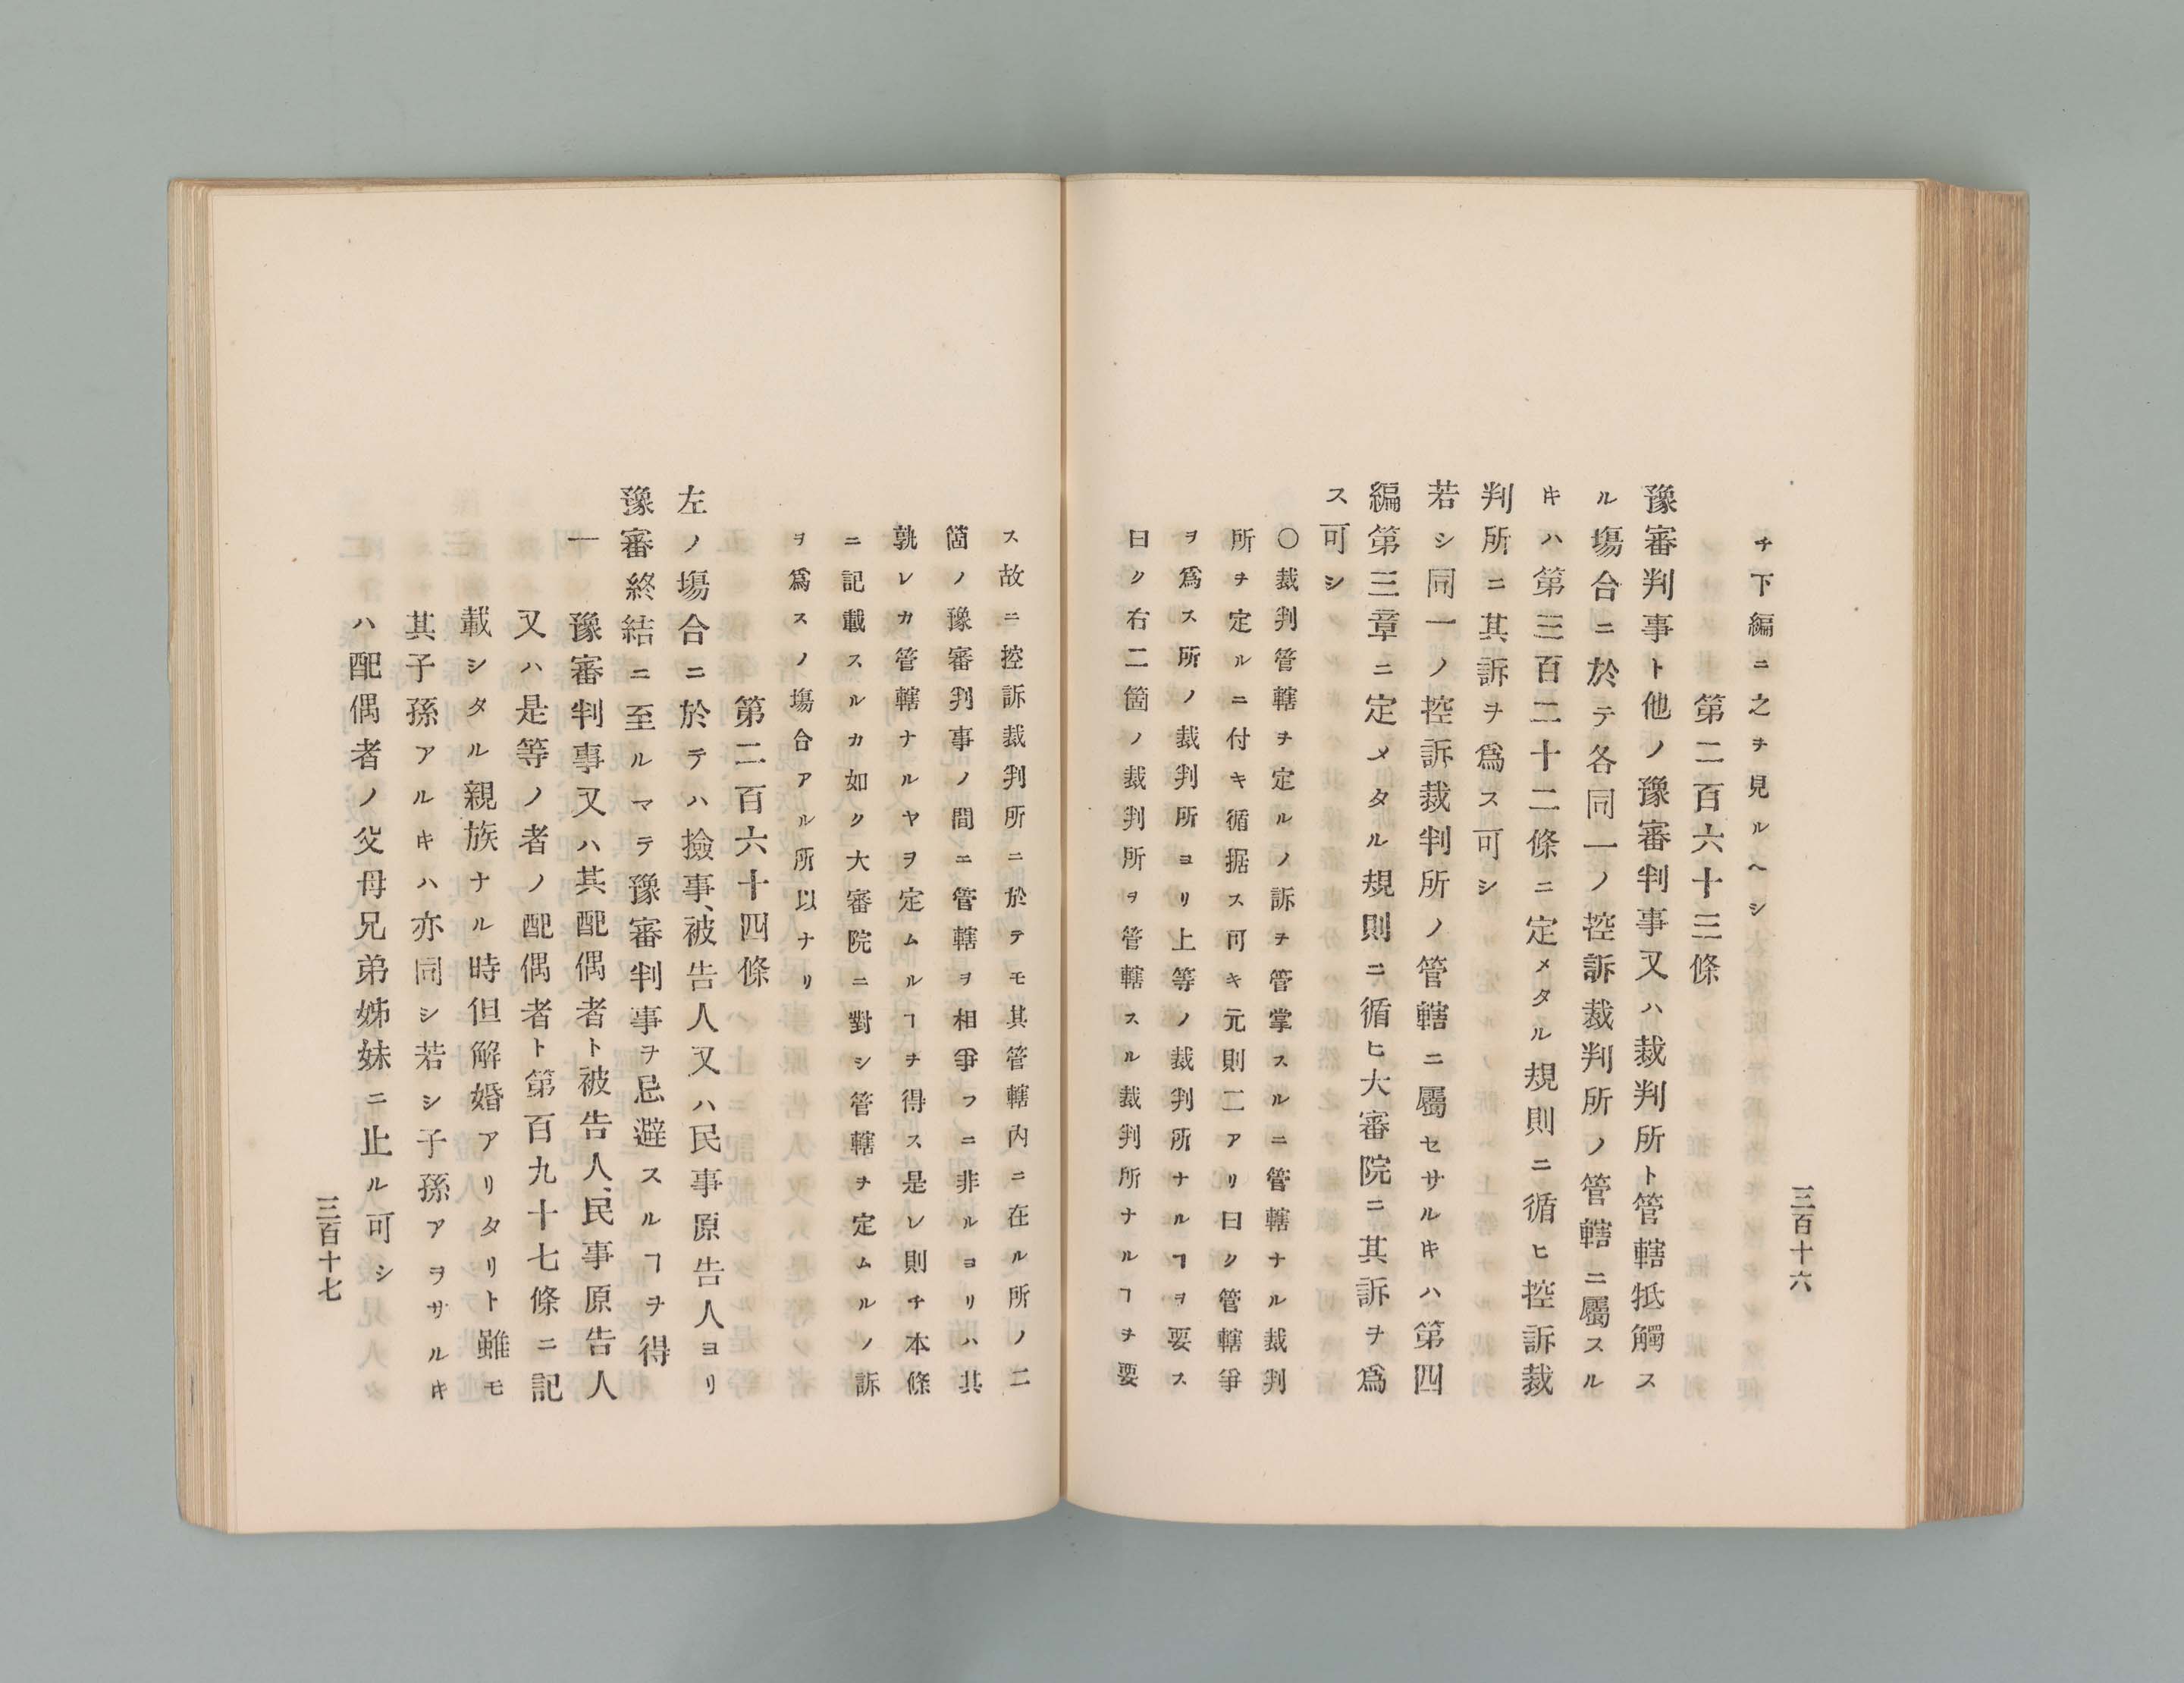 三百十六
チ下編ニ之ヲ見ルヘシ
第二百六十三條
豫審判事ト他ノ豫審判事又ハ裁判所ト管轄抵觸ス
ル塲合ニ於テ各同一ノ控訴裁判所ノ管轄ニ屬スル
キハ第三百二十二條ニ定メタル規則ニ循ヒ控訴裁
判所ニ其訴ヲ爲ス可シ
若シ同一ノ控訴裁判所ノ管轄ニ屬セサルキハ第四
編第三章ニ定メタル規則ニ循ヒ大審院ニ其訴ヲ爲
ス可シ
〇裁判管轄ヲ定ルノ訴ヲ管掌スルニ管轄ナル裁判
所ヲ定ルニ付キ循据ス可キ元則二アリ曰ク管轄爭
ヲ爲ス所ノ裁判所ヨリ上等ノ裁判所ナルヿヲ要ス
曰ク右二箇ノ裁判所ヲ管轄スル裁判所ナルヿヲ要
ス故ニ控訴裁判所ニ於テモ其管轄内ニ在ル所ノ二
箇ノ豫審判事ノ間ニ管轄ヲ相爭フニ非ルヨリハ其
孰レカ管轄ナルヤヲ定ムルヿヲ得ス是レ則チ本條
ニ記載スルカ如ク大審院ニ對シ管轄ヲ定ムルノ訴
ヲ爲スノ塲合アル所以ナリ
第二百六十四條
左ノ塲合ニ於テハ撿事、被告人又ハ民事原告人ヨリ
豫審終結ニ至ルマテ豫審判事ヲ忌避スルヿヲ得
一 豫審判事又ハ其配偶者ト被告人、民事原告人
又ハ是等ノ者ノ配偶者ト第百九十七條ニ記
載シタル親族ナル時但解婚アリタリト雖モ
其子孫アルキハ亦同シ若シ子孫アヲサルキ
ハ配偶者ノ父母兄弟姊妹ニ止ル可シ
三百十七